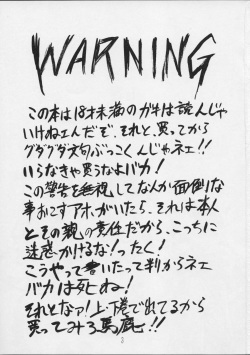 WARNING
この本は18才未満のガキは読んじゃ
いけねェんだぞ、それと、買ってから
グダグダ文句ぶっこくんじゃネェ!!
いらなきゃ買うなよバカ!
この警告を無視してなんか面倒な
事おこすアホがいたら、それは本人
とその親の責任だから、こっちに
迷惑かけるな!ったく!
こうやって書いたって判からネェ
バカは死ね!
それとなァ!上・下巻で出てるから
買ってみろ馬鹿!!
3